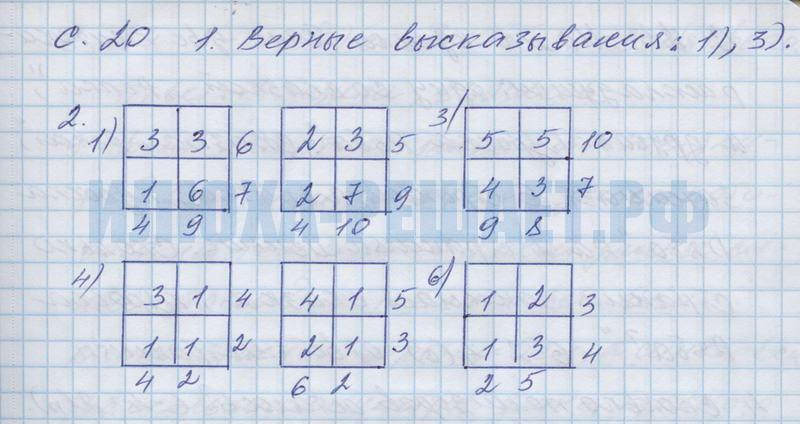 с. 20 1. Верные высказывания: 1), 3).
2.
1) 3 3 6 2 3 5 3) 5 5 10
1 6 7 2 7 9 4 3 7
4 9 4 10 9 8
ИЛЮХА-РЕШАЕТ.РФ
4) 3 1 4 4 1 5 6) 1 2 3
1 1 2 2 1 3 1 3 4
4 2 6 2 2 5